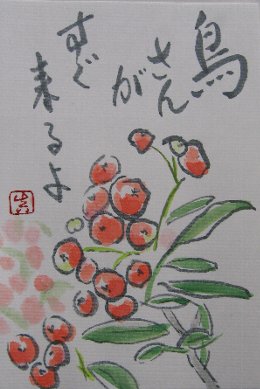 鳥
さん
が
すぐ
来るよ